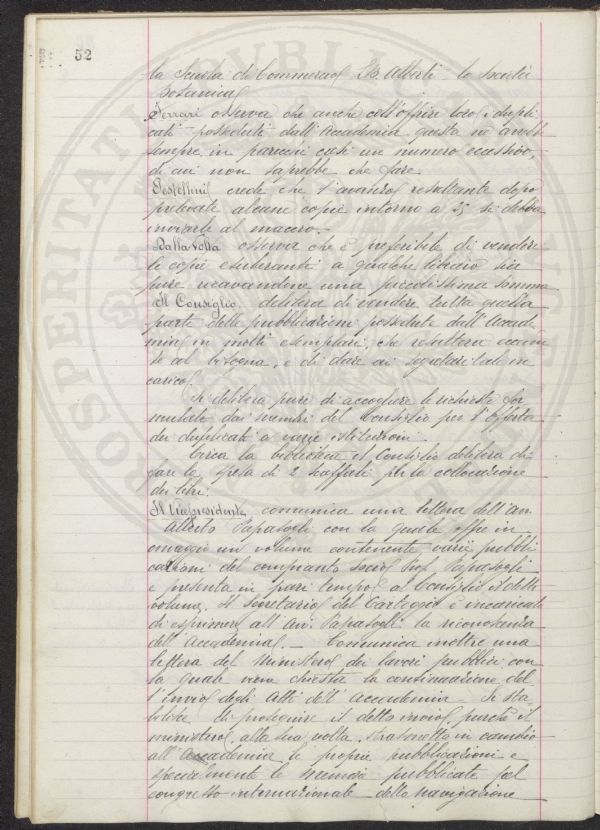 52
la Scuola di Commercio L. B. Alberti la Società
Botanica
Ferrari osserva che anche coll'offrire loco i dupli
cati posseduti dall'Accademia questa ne avrebbe
sempre in parecchi casi un numero eccessivo,
di cui non saprebbe che fare.
Pestellini crede che l'avanzo resultante dopo
prelevate alcune copie intorno a 25 si debba
inviarle al macero.-
Dalla Volta osserva che è preferibile di vendere
le copie esuberanti a qualche libraio sia
pure ricavandone una piccolissima somma
Il Consiglio delibera di vendere tutta quella
parte delle pubblicazioni possedute dall'Accade
mia in molti esemplari, che resulterà ecceden
te al bisogno, e di dare ai segretari tale in
carico.
Si delibera pure di accogliere le richieste for
mulate dai membri del Consiglio per l'offerta
dei duplicati a varie istituzioni.
Circa la biblioteca il Consiglio delibera di
fare la spesa di 2 scaffali per la collocazione
dei libri.
Il Vicepresidente comunica una lettera dell'avv.
Alberto Papasogli con la quale offre in
omaggio un volume contenente varie pubbli
cazioni del compianto socio Prof. Papasogli
e presenta in pari tempo al Consiglio il detto
volume. Il Segretario del Carteggio è incaricato
di esprimere all'avv. Papasogli la riconoscenza
dell'Accademia. - Comunica inoltre una
lettera del Ministero dei lavori pubblici con
la quale viene chiesta la continuazione del
l'invio degli Atti dell'Accademia. Si sta
bilisce di proseguire il detto invio purchè il
ministero alla sua volta trasmetta in cambio
all'Accademia le proprie pubblicazioni e
specialmente le memorie pubblicate pel
congresso internazionale della navigazione